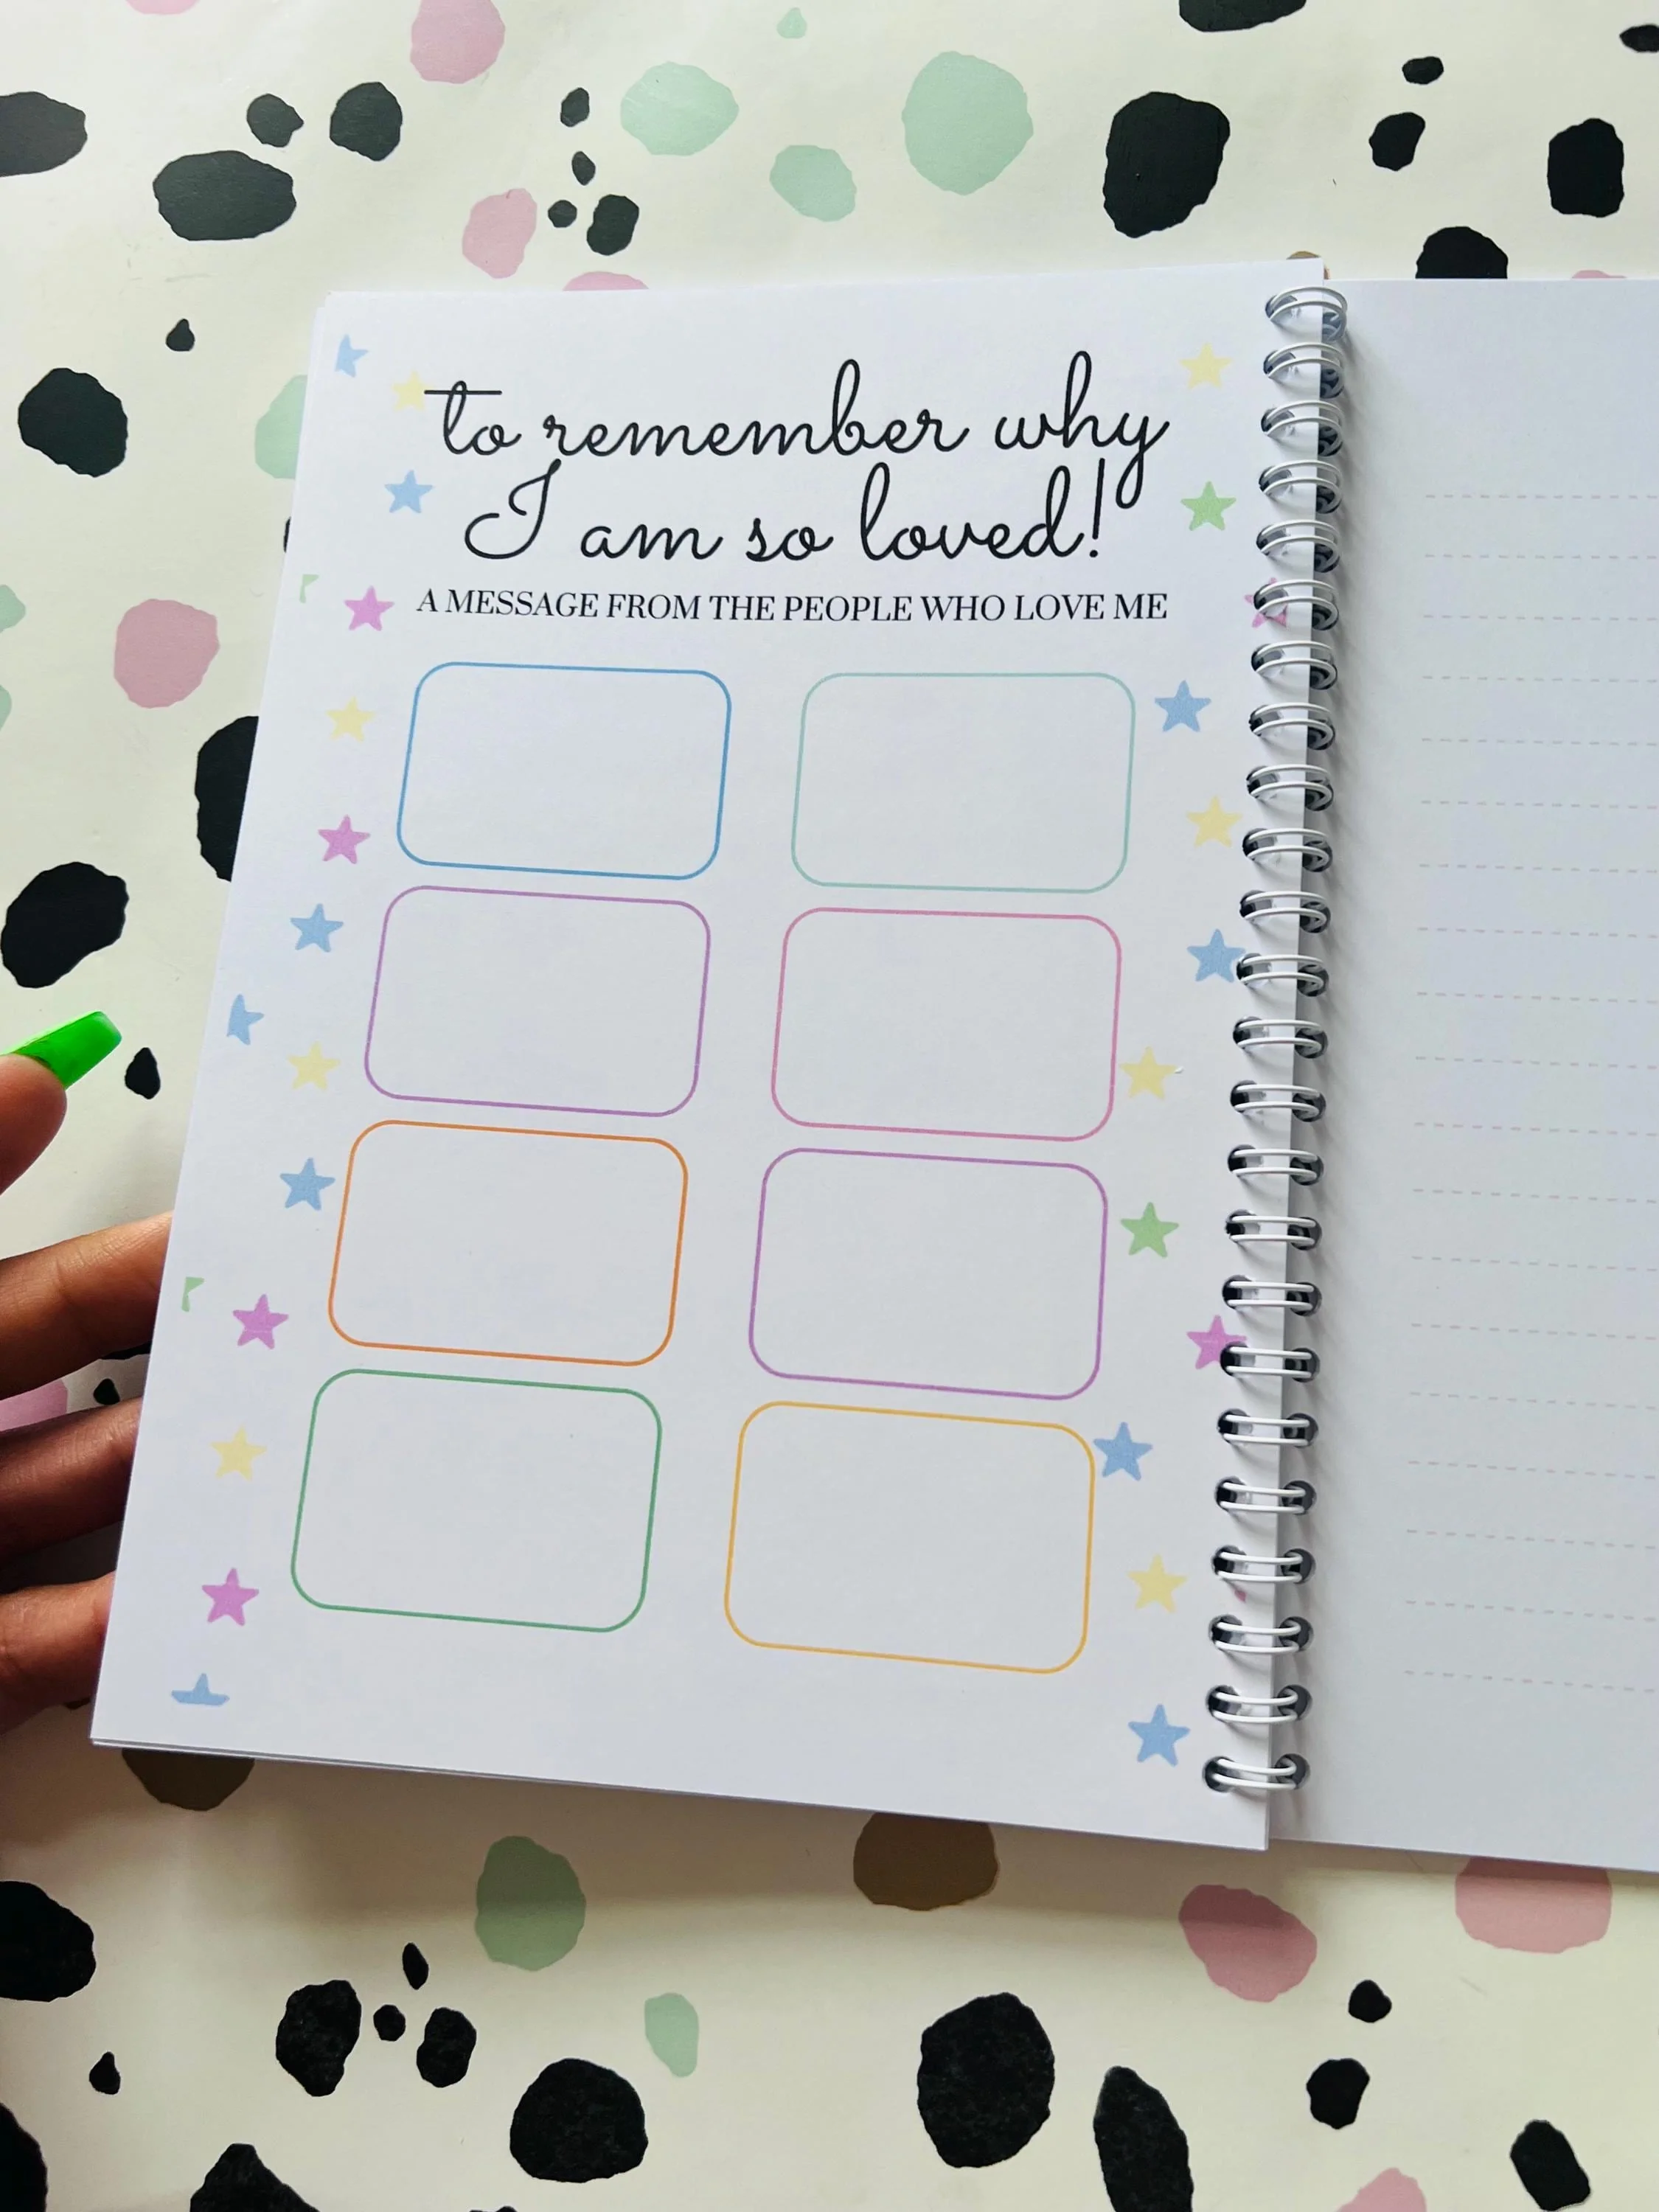 to remember why
I am so loved!
A MESSAGE FROM THE PEOPLE WHO LOVE ME